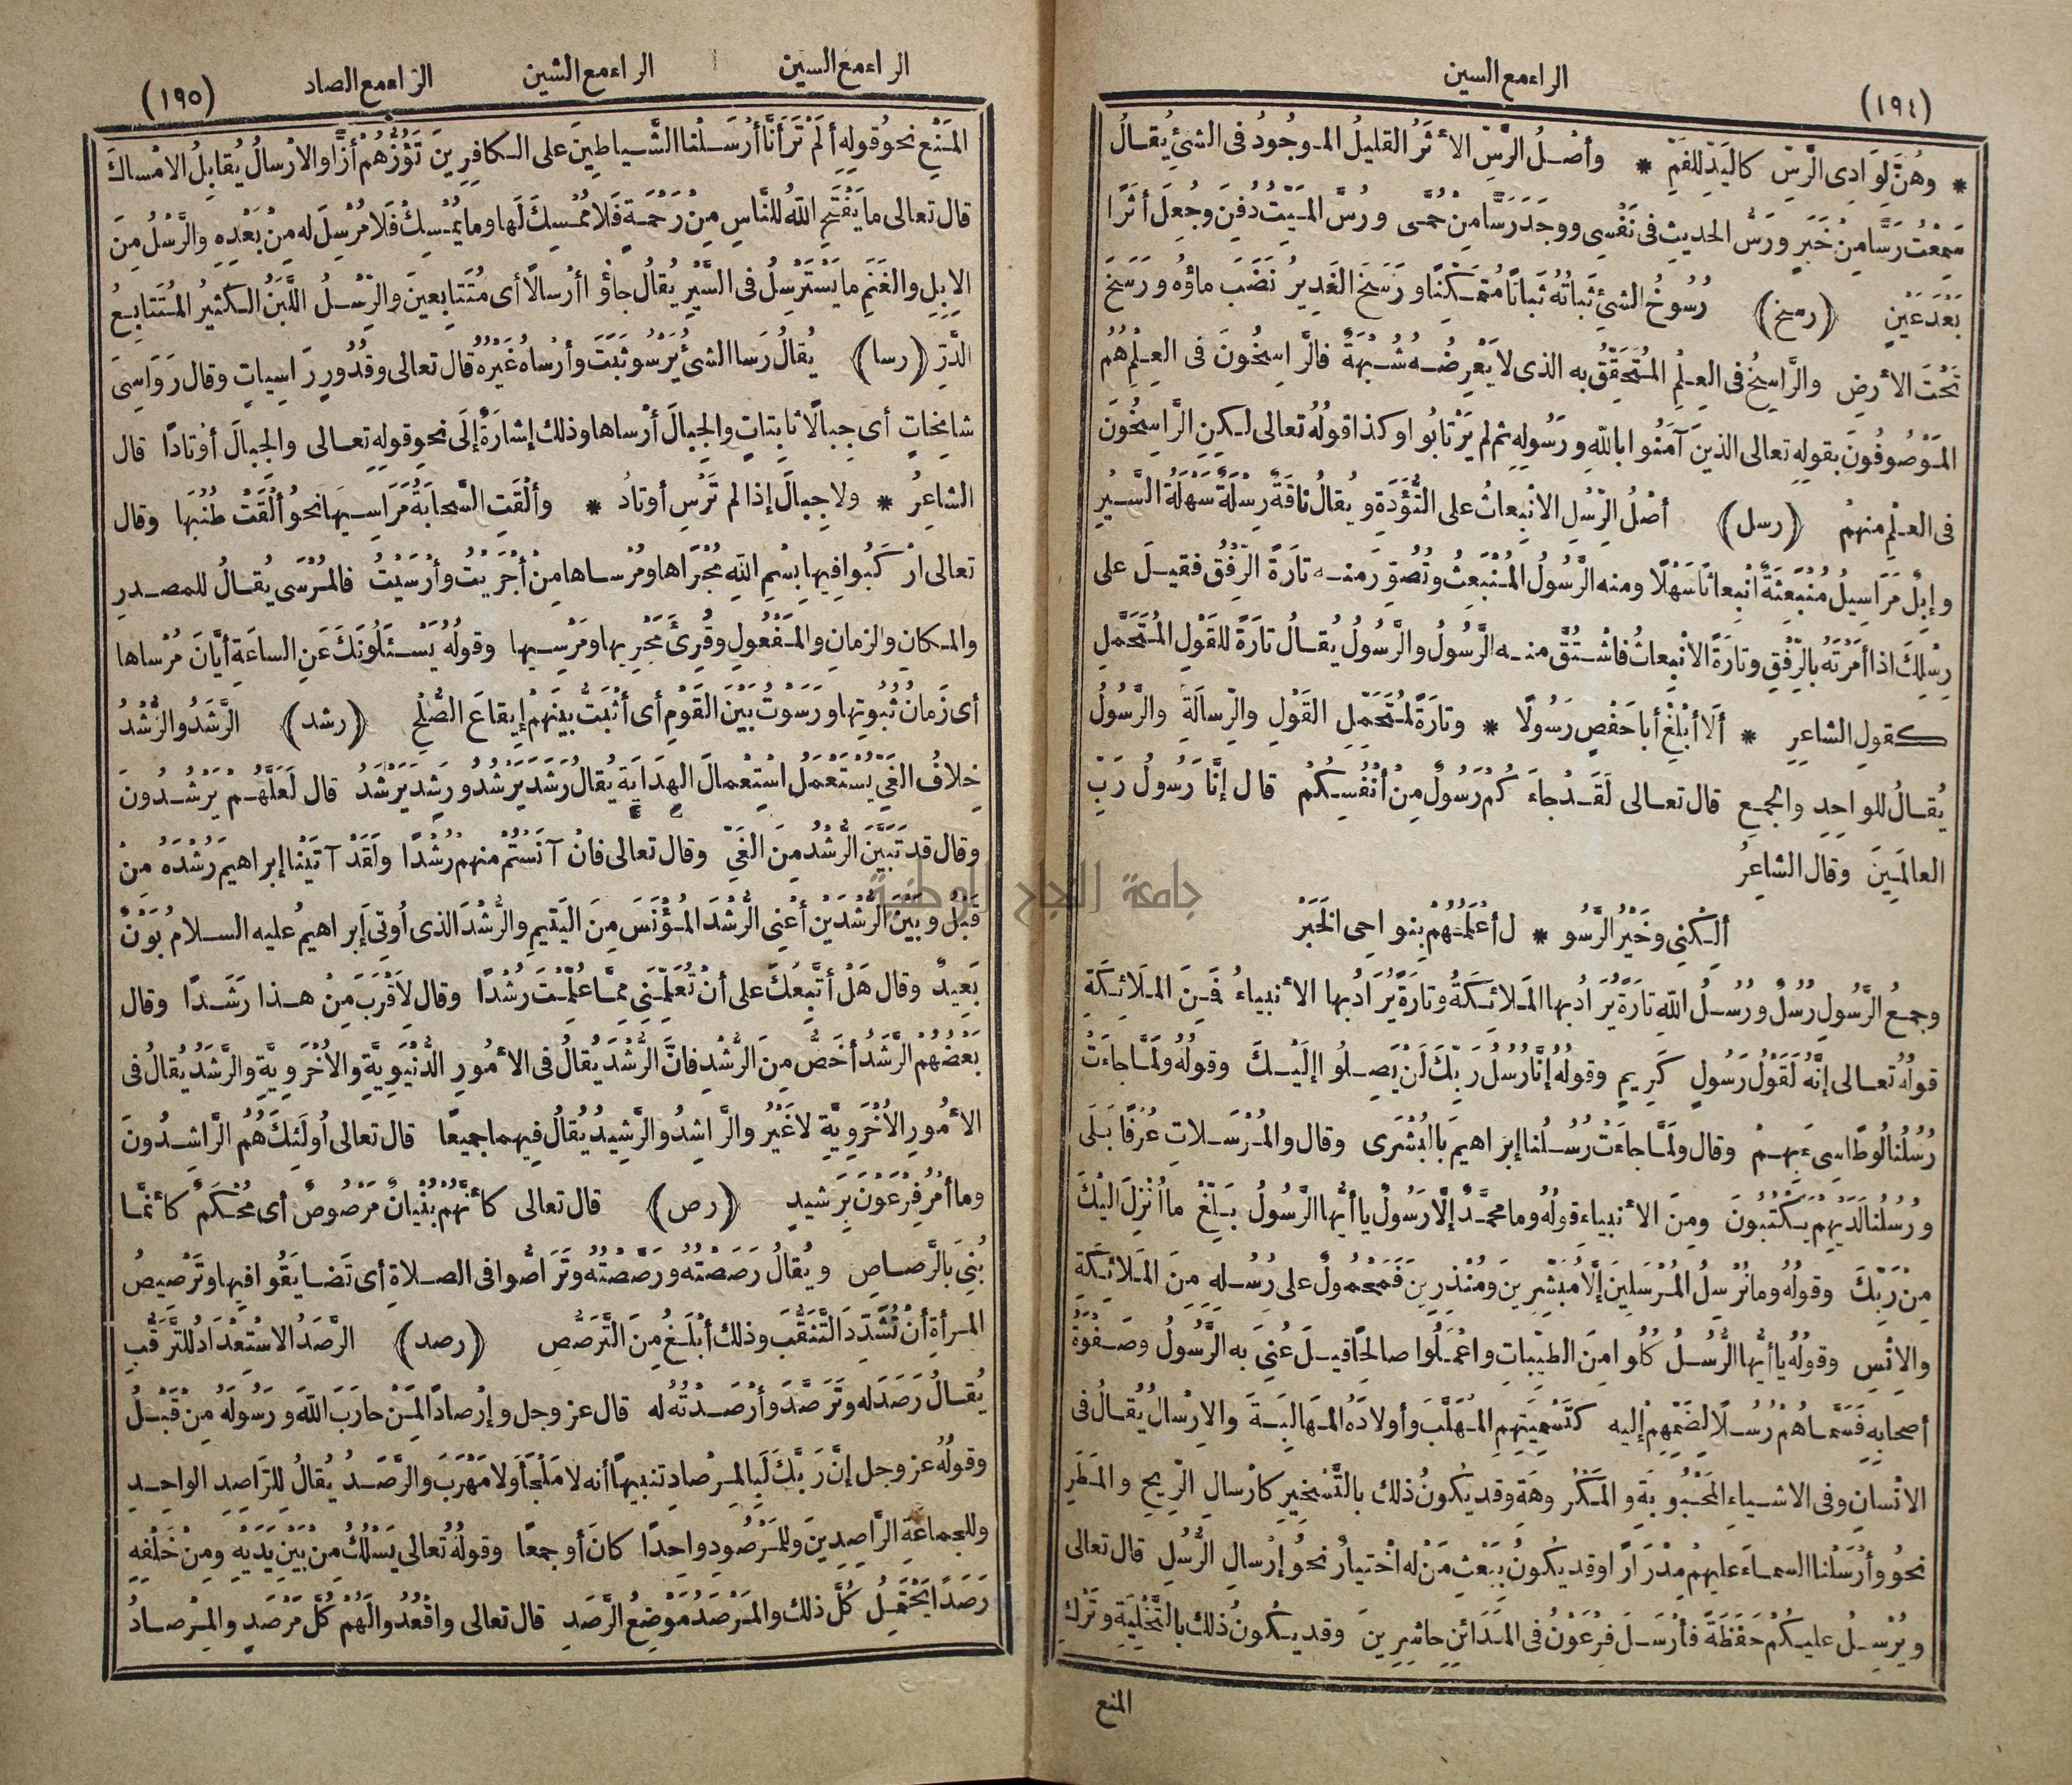 (١٩٤)
الراء مع السين
* وهُنَّ لِوَادِى الرَّسِّ كاليَدِ لِلفَمِ * وأصْلُ الرَّسِّ الأثَرُ القليلُ المَوجُودُ فى الشئِ يُقالُ
سَمِعْتُ رَسًّا مِنْ خَبَرٍ ورَسُّ الحديثِ فى نَفْسِى ووجَدَ رَسًّا مِنْ حُمَّى ورُسَّ المَيِّتُ دُفِنَ وجُعِلَ أثَرًا
بَعْدَ عَيْنٍ (رسخ) رُسُوخُ الشئِ ثَباتُهُ ثَباتًا مُتَمَكِّنًا ورَسَخَ الغَدِيرُ نَضَبَ ماؤُهُ ورَسَخَ
تَحْتَ الأرضِ والرَّاسِخُ فى العِلْمِ المُتَحَقِّقُ به الذى لا يَعْرِضُهُ شُبْهَةٌ فالرَّاسِخُونَ فى العِلْمِ هُمُ
المَوْصُوفُونَ بقوله تعالى الذينَ آمَنُوا بالله ورَسُولِهِ ثم لم يَرْتابُوا وكذا قولُهُ تعالى لكِنِ الرَّاسِخُونَ
فى العِلْمِ منهمْ (رسل) أصْلُ الرِّسْلِ الانْبِعاثُ على التُّؤَدَةِ ويُقالُ ناقَةٌ رِسْلَةٌ سَهْلَةُ السَّيْرِ
وإبِلٌ مَرَاسِيلُ مُنْبَعِثَةٌ انْبِعاثًا سَهْلًا ومنه الرَّسُولُ المُنْبَعِثُ وتُصُوِّرَ منه تارَةً الرِّفْقُ فقيلَ على
رِسْلِكَ اذا أمَرْتَهُ بالرِّفْقِ وتارَةً الانْبِعاثُ فاشْتُقَّ منه الرَّسُولُ والرَّسُولُ يُقالُ تارَةً للقَوْلِ المُتَحَمَّلِ
كقولِ الشاعرِ * ألَا أبْلِغْ أبا حَفْصٍ رَسُولًا * وتارَةً لمُتَحَمِّلِ القَوْلِ والرِّسالَةِ والرَّسُولُ
يُقالُ للواحِدِ والجمعِ قال تعالى لَقَدْ جاءَ كُمْ رَسُولٌ مِنْ أنْفُسِكُمْ قال إنَّا رَسُولُ رَبِّ
العالَمِينَ وقال الشاعِرُ
ألِكْنِى وخَيْرُ الرَّسُو * لِ أعْلَمُهُمْ بِنواحِى الخَبَرْ
وجمعُ الرَّسُولِ رُسُلٌ ورُسُلُ اللهِ تارَةً يُرَادُ بها المَلائِكَةُ وتارَةً يُرَادُ بها الأنبياءُ فَمِنَ المَلائِكَةِ
قولُهُ تعالى إنَّهُ لَقَوْلُ رَسُولٍ كَرِيمٍ وقولُهُ إنَّا رُسُلُ رَبِّكَ لَنْ يَصِلُوا إلَيْكَ وقولُهُ ولَمَّا جاءَتْ
رُسُلُنا لُوطًا سِىءَ بِهِمْ وقال ولَمَّا جاءَتْ رُسُلُنا إبراهيمَ بالبُشْرَى وقال والمُرْسَلاتِ عُرْفًا بَلَى
ورُسُلُنا لَدَيْهِمْ يَكْتُبُونَ ومِنَ الأنبياءِ قولُهُ وما محمَّدٌ إلَّا رَسُولٌ يا أيُّها الرَّسُولُ بَلِّغْ ما أُنْزِلَ اليْكَ
مِنْ رَبِّكَ وقولُهُ وما نُرْسِلُ المُرْسَلِينَ إلَّا مُبَشِّرِينَ ومُنْذِرِينَ فَمَحْمُولٌ على رُسُلِهِ مِنَ المَلائِكَةِ
والانْسِ وقولُهُ يا أيُّها الرُّسُلُ كُلُوا مِنَ الطيِّباتِ واعْمَلُوا صالحًا قيلَ عُنِىَ به الرَّسُولُ وصَفْوَةُ
أصحابِهِ فَسَمَّاهُمْ رُسُلًا لِضَمِّهِمْ إليه كتَسْمِيَتِهِمُ المُهَلَّبَ وأولادَهُ المَهالِبَةَ والارْسالُ يُقالُ فى
الانْسانِ وفى الاشياءِ المَحْبُوبَةِ والمَكْرُوهَةِ وقد يكُونُ ذلك بالتَّسْخِيرِ كارْسالِ الرِّيحِ والمَطَرِ
نحوُ وأرْسَلْنا السماءَ عليهمْ مِدْرَارًا وقد يكُونُ بِبَعْثِ مَنْ له اخْتيارٌ نحوُ إرْسالِ الرُّسُلِ قال تعالى
ويُرْسِلُ عليكُمْ حَفَظَةً فأرْسَلَ فِرْعَوْنُ فى المَدَائِنِ حاشِرِينَ وقد يكُونُ ذلك بالتَّخْلِيَةِ وتَرْكِ
المنع
الراء مع السين الراء مع الشين الراء مع الصاد (١٩٥)
المَنْعِ نحوُ قولِهِ ألَمْ تَرَ أنَّا أرْسَلْنا الشَّياطِينَ على الكافِرِينَ تَؤُزُّهُمْ أزًّا والارْسالُ يُقابِلُ الامْساكَ
قال تعالى ما يَفْتَحِ اللهُ للنَّاسِ مِنْ رَحْمَةٍ فَلا مُمْسِكَ لَها وما يُمْسِكْ فَلا مُرْسِلَ له مِنْ بَعْدِهِ والرَّسَلُ مِنَ
الابِلِ والغَنَمِ ما يَسْتَرْسِلُ فى السَّيْرِ يُقالُ جاؤُا أرْسالًا أى مُتَتابِعِينَ والرِّسْلُ اللَّبَنُ الكَثِيرُ المُتَتابِعُ
الدَّرِّ (رسا) يُقالُ رَسا الشئُ يَرْسُو ثَبَتَ وأرْساهُ غَيْرُهُ قال تعالى وقُدُورٍ رَاسِياتٍ وقال رَوَاسِىَ
شامِخاتٍ أى جِبالًا ثابتاتٍ والجِبالَ أرْساها وذلك إشارَةٌ إلَى نحوِ قولِهِ تعالى والجِبالَ أوْتادًا قال
الشاعِرُ * ولا جِبالَ إذا لم تَرْسِ أوتادُ * وألْقَتِ السَّحابَةُ مَرَاسِيَها نحوُ ألْقَتْ طُنُبَها وقال
تعالى ارْكَبُوا فِيها بِسْمِ اللهِ مُجْرَاها ومُرْساها مِنْ أجْرَيْتُ وأرْسَيْتُ فالمُرْسَى يُقالُ للمصدرِ
والمكانِ والزمانِ والمَفْعُولِ وقُرِئَ مَجْرِيها ومَرْسِيها وقولُهُ يَسْئَلُونَكَ عَنِ الساعَةِ أيَّانَ مُرْساها
أى زَمانُ ثُبُوتِها ورَسَوْتُ بَيْنَ القَوْمِ أى أثْبَتُّ بينَهمْ إيقاعَ الصُّلْحِ (رشد) الرَّشَدُ والرُّشْدُ
خِلافُ الغَىِّ يُسْتَعْمَلُ اسْتِعْمالَ الهِدَايَةِ يُقالُ رَشَدَ يَرْشُدُ ورَشِدَ يَرْشَدُ قال لَعَلَّهُمْ يَرْشُدُونَ
وقال قد تَبَيَّنَ الرُّشْدُ مِنَ الغَىِّ وقال تعالى فانْ آنَسْتُمْ منهم رُشْدًا ولَقَدْ آتَيْنا إبراهيمَ رُشْدَهُ مِنْ
قَبْلُ وبَيْنَ الرُّشْدَيْنِ أعْنِى الرُّشْدَ المُؤْنَسَ مِنَ اليَتيمِ والرُّشْدَ الذى أُوتِىَ إبراهيمُ عليه السلامُ بَوْنٌ
بَعِيدٌ وقال هَلْ أتَّبِعُكَ على أنْ تُعَلِّمَنِى مِمَّا عُلِّمْتَ رُشْدًا وقال لِأَقْرَبَ مِنْ هذا رَشَدًا وقال
بَعْضُهُمُ الرَّشَدُ أخَصُّ مِنَ الرُّشْدِ فانَّ الرُّشْدَ يُقالُ فى الأُمُورِ الدُّنْيَوِيَّةِ والأُخْرَوِيَّةِ والرَّشَدُ يُقالُ فى
الأُمُورِ الأُخْرَوِيَّةِ لا غَيْرُ والرَّاشِدُ والرَّشِيدُ يُقالُ فِيهِما جميعًا قال تعالى أُولَئِكَ هُمُ الرَّاشِدُونَ
وما أمْرُ فِرْعَوْنَ بِرَشيدٍ (رص) قال تعالى كأنَّهُمْ بُنْيانٌ مَرْصُوصٌ أى مُحْكَمٌ كأنَّما
بُنِىَ بالرَّصاصِ ويُقالُ رَصَصْتُهُ ورَصَّصْتُهُ وتَرَاصُّوا فى الصلاةِ أى تَضايَقُوا فيها وتَرْصِيصُ
المرأةِ أنْ تُشَدِّدَ التَّنَقُّبَ وذلك أبْلَغُ مِنَ التَّرَصُّصِ (رصد) الرَّصَدُ الاسْتِعْدَادُ للتَّرَقُّبِ
يُقالُ رَصَدَ له وتَرَصَّدَ وأرْصَدْتُهُ له قال عز وجل وإرْصادًا لمَنْ حارَبَ اللهَ ورَسُولَهُ مِنْ قَبْلُ
وقولُهُ عز وجل إنَّ رَبَّكَ لَبِالمِرْصادِ تنبيهًا أنه لا مَلْجَأَ ولا مَهْرَبَ والرَّصَدُ يُقالُ لِلرَّاصِدِ الواحِدِ
وللجماعَةِ الرَّاصِدِينَ وللمَرْصُودِ واحِدًا كانَ أو جمعًا وقولُهُ تعالى يَسْلُكُ مِنْ بَيْنِ يَدَيْهِ ومِنْ خَلْفِهِ
رَصَدًا يَحْتَمِلُ كُلَّ ذلك والمَرْصَدُ مَوْضِعُ الرَّصَدِ قال تعالى واقْعُدُوا لَهُمْ كُلَّ مَرْصَدٍ والمِرْصادُ
جامعة النجاح الوطنية